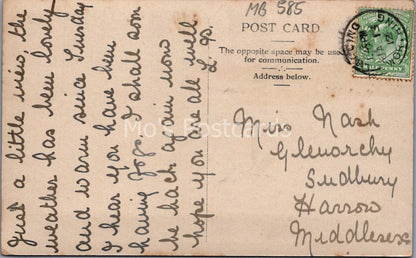 Just a little view, the
weather has been lovely
and warm since Tuesday
I hear you have been
having fogs I shall soon
be back again now
hope you are all well
MG 585
POST CARD.
The opposite space may be used
for communication.
Address below.
PENNY
LANCING
Miss Nash
Glenorchy
Sudbury
Harrow
Middlesex
Mo's Postcards